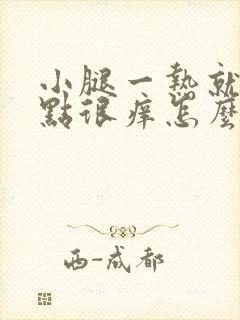 小腿一熱就
點很癢怎麼
西-成都